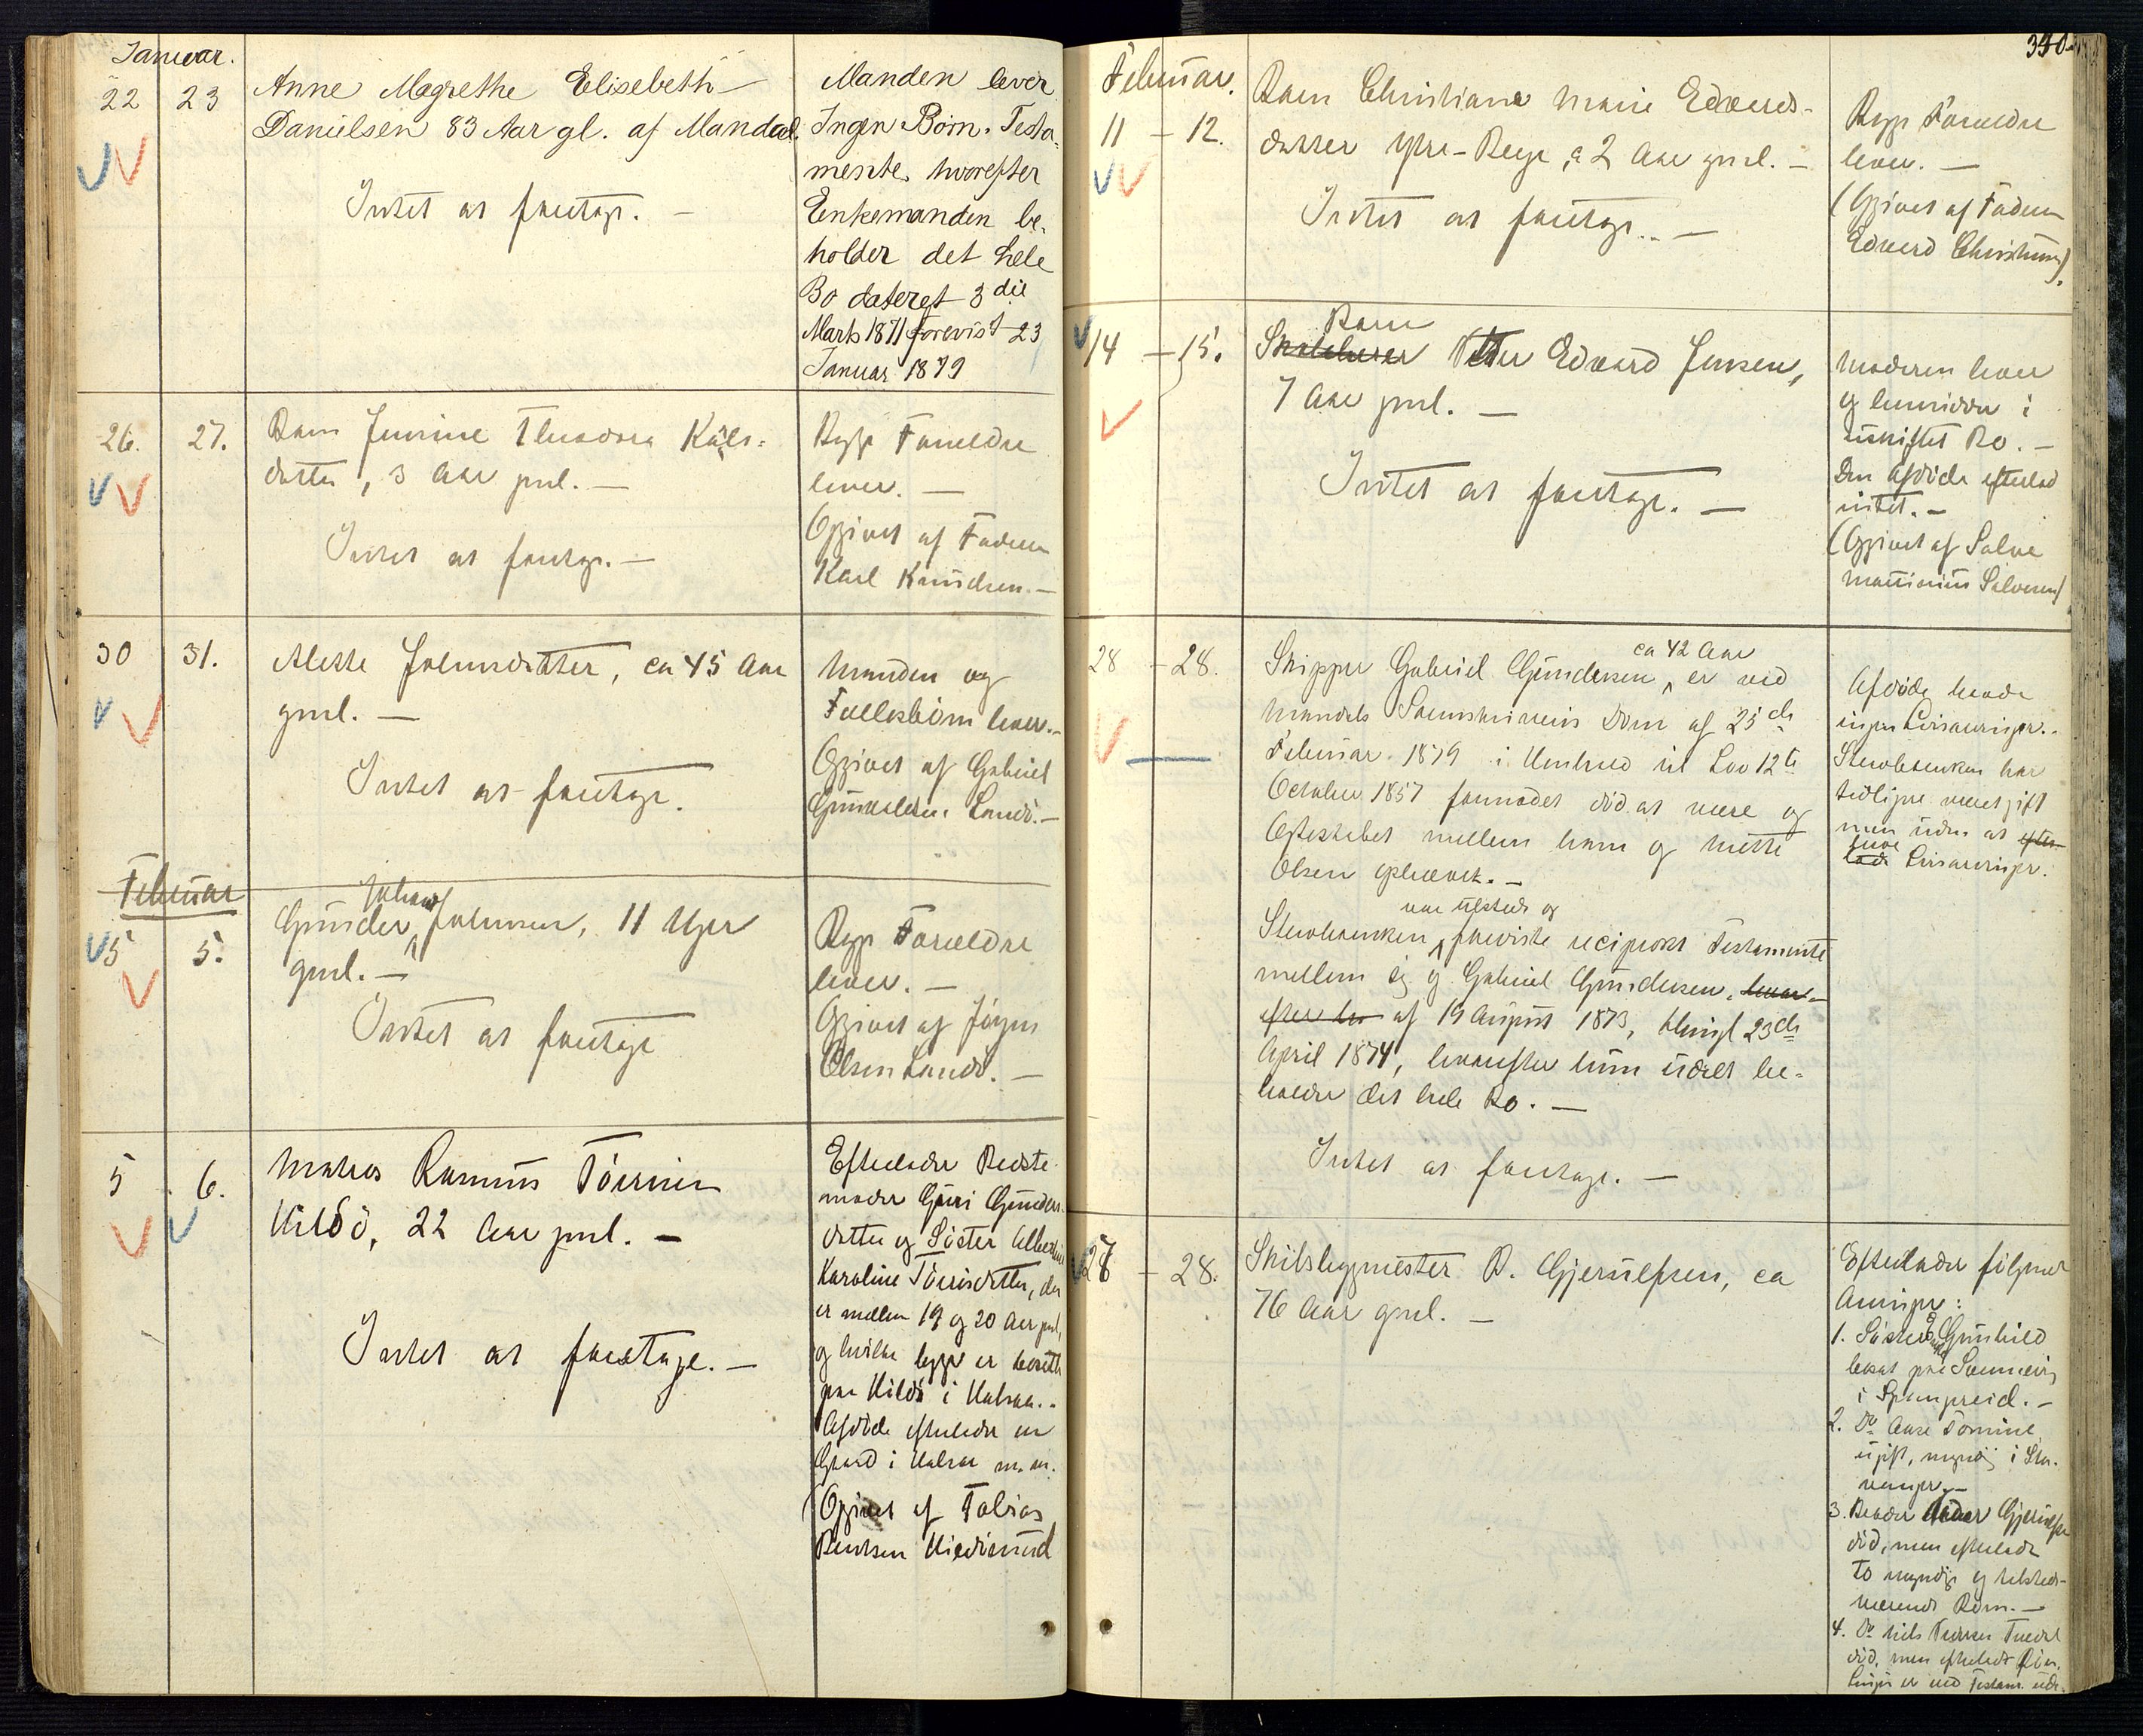 Januar.
22 23 Anne Magrethe Elisebeth
Danielsen 83 Aar gl. af Mandal.
Intet at foretage. —
Manden lever
Ingen Børn. Testa-
mente, hvorefter
Enkemanden be-
holder det hele
Bo dateret 3die
Marts 1871 forevist 23
Januar 1879
26. 27. Barn Jensine Theodora Karls-
datter, 3 Aar gml. —
Intet at foretage. —
Begge Forældre
lever. —
Opgivet af Faderen
Karl Knudsen. —
30 31. Alette Johnsdatter, ca 45 Aar
gml. —
Intet at foretage.
Manden og
Fællesbørn lever. -
Opgivet af Gabriel
Landø. —
Februar
5 5. Gunder Johan Johnsen, 11 Uger
gml. —
Intet at foretage
Begge Forældre
lever. —
Opgivet af Jørgen
Olsen Landø. —
5 6. Matros Rasmus Tørrisen
Hildø, 22 Aar gml. —
Intet at foretage. —
Efterlader Bedste-
moder Guri Gunders-
datter og Søster
Karoline Tørrisdatter, der
er mellem 19 og 20 Aar gml,
og hvilke begge er bosatte
paa Hildø i Halsaa. -
Afdøde efterlader en
Gaard i Halsaa m. m.
(Opgivet af Tobias
Berntsen
340.
Februar.
11 — 12. Barn Christiane Marie Edvards-
datter Ytre-Berge, a 2 Aar gml. —
Intet at foretage. —
Begge Forældre
lever. —
(Opgivet af Faderen
Edvard Christensen).
14 — 15. Barn
Peter Edvard Jensen,
7 Aar gml. —
Intet at foretage. —
Moderen lever
og hensidder i
uskiftet Bo. —
Den Afdøde efterlod
intet. —
(Opgivet af Salve
Salvesen)
28 — 28. Skipper Gabriel Gundersen, ca 42 Aar er ved
Mandals Sorenskriveris Dom af 25de
Februar 1879 i Henhold til Lov 12te
October 1857 formodet død at være og
Ægteskabet mellem ham og Mette
Olsen ophævet. —
Stervboenken var tilstede og foreviste reciprokt Testamente
mellem sig og Gabriel Gundersen, hvor-
efter hu af 19 August 1873, thingl 23de
April 1874, hvorefter hun udelt be-
holder det hele Bo. —
Intet at foretage. —
Afdøde havde
ingen Livsarvinger. -
Stervboenken har
tidligere været gift
men uden at efter-
lade have Livsarvinger.
27 — 28. Skibsbygmester B. Gjerulfsen, ca
76 Aar gml. —
Efterlader følgende
Arvinger:
1. Søster Gunhild
bosat paa
i Spangereid. —
2. Do Aase Tomine
ugift, myndig i Sta-
vanger. —
3. Broder Gjerulfsen
død, men efterladt
to myndige og tilstede-
værende Børn. —
4. Do Niels
død, men efterladt Børn.